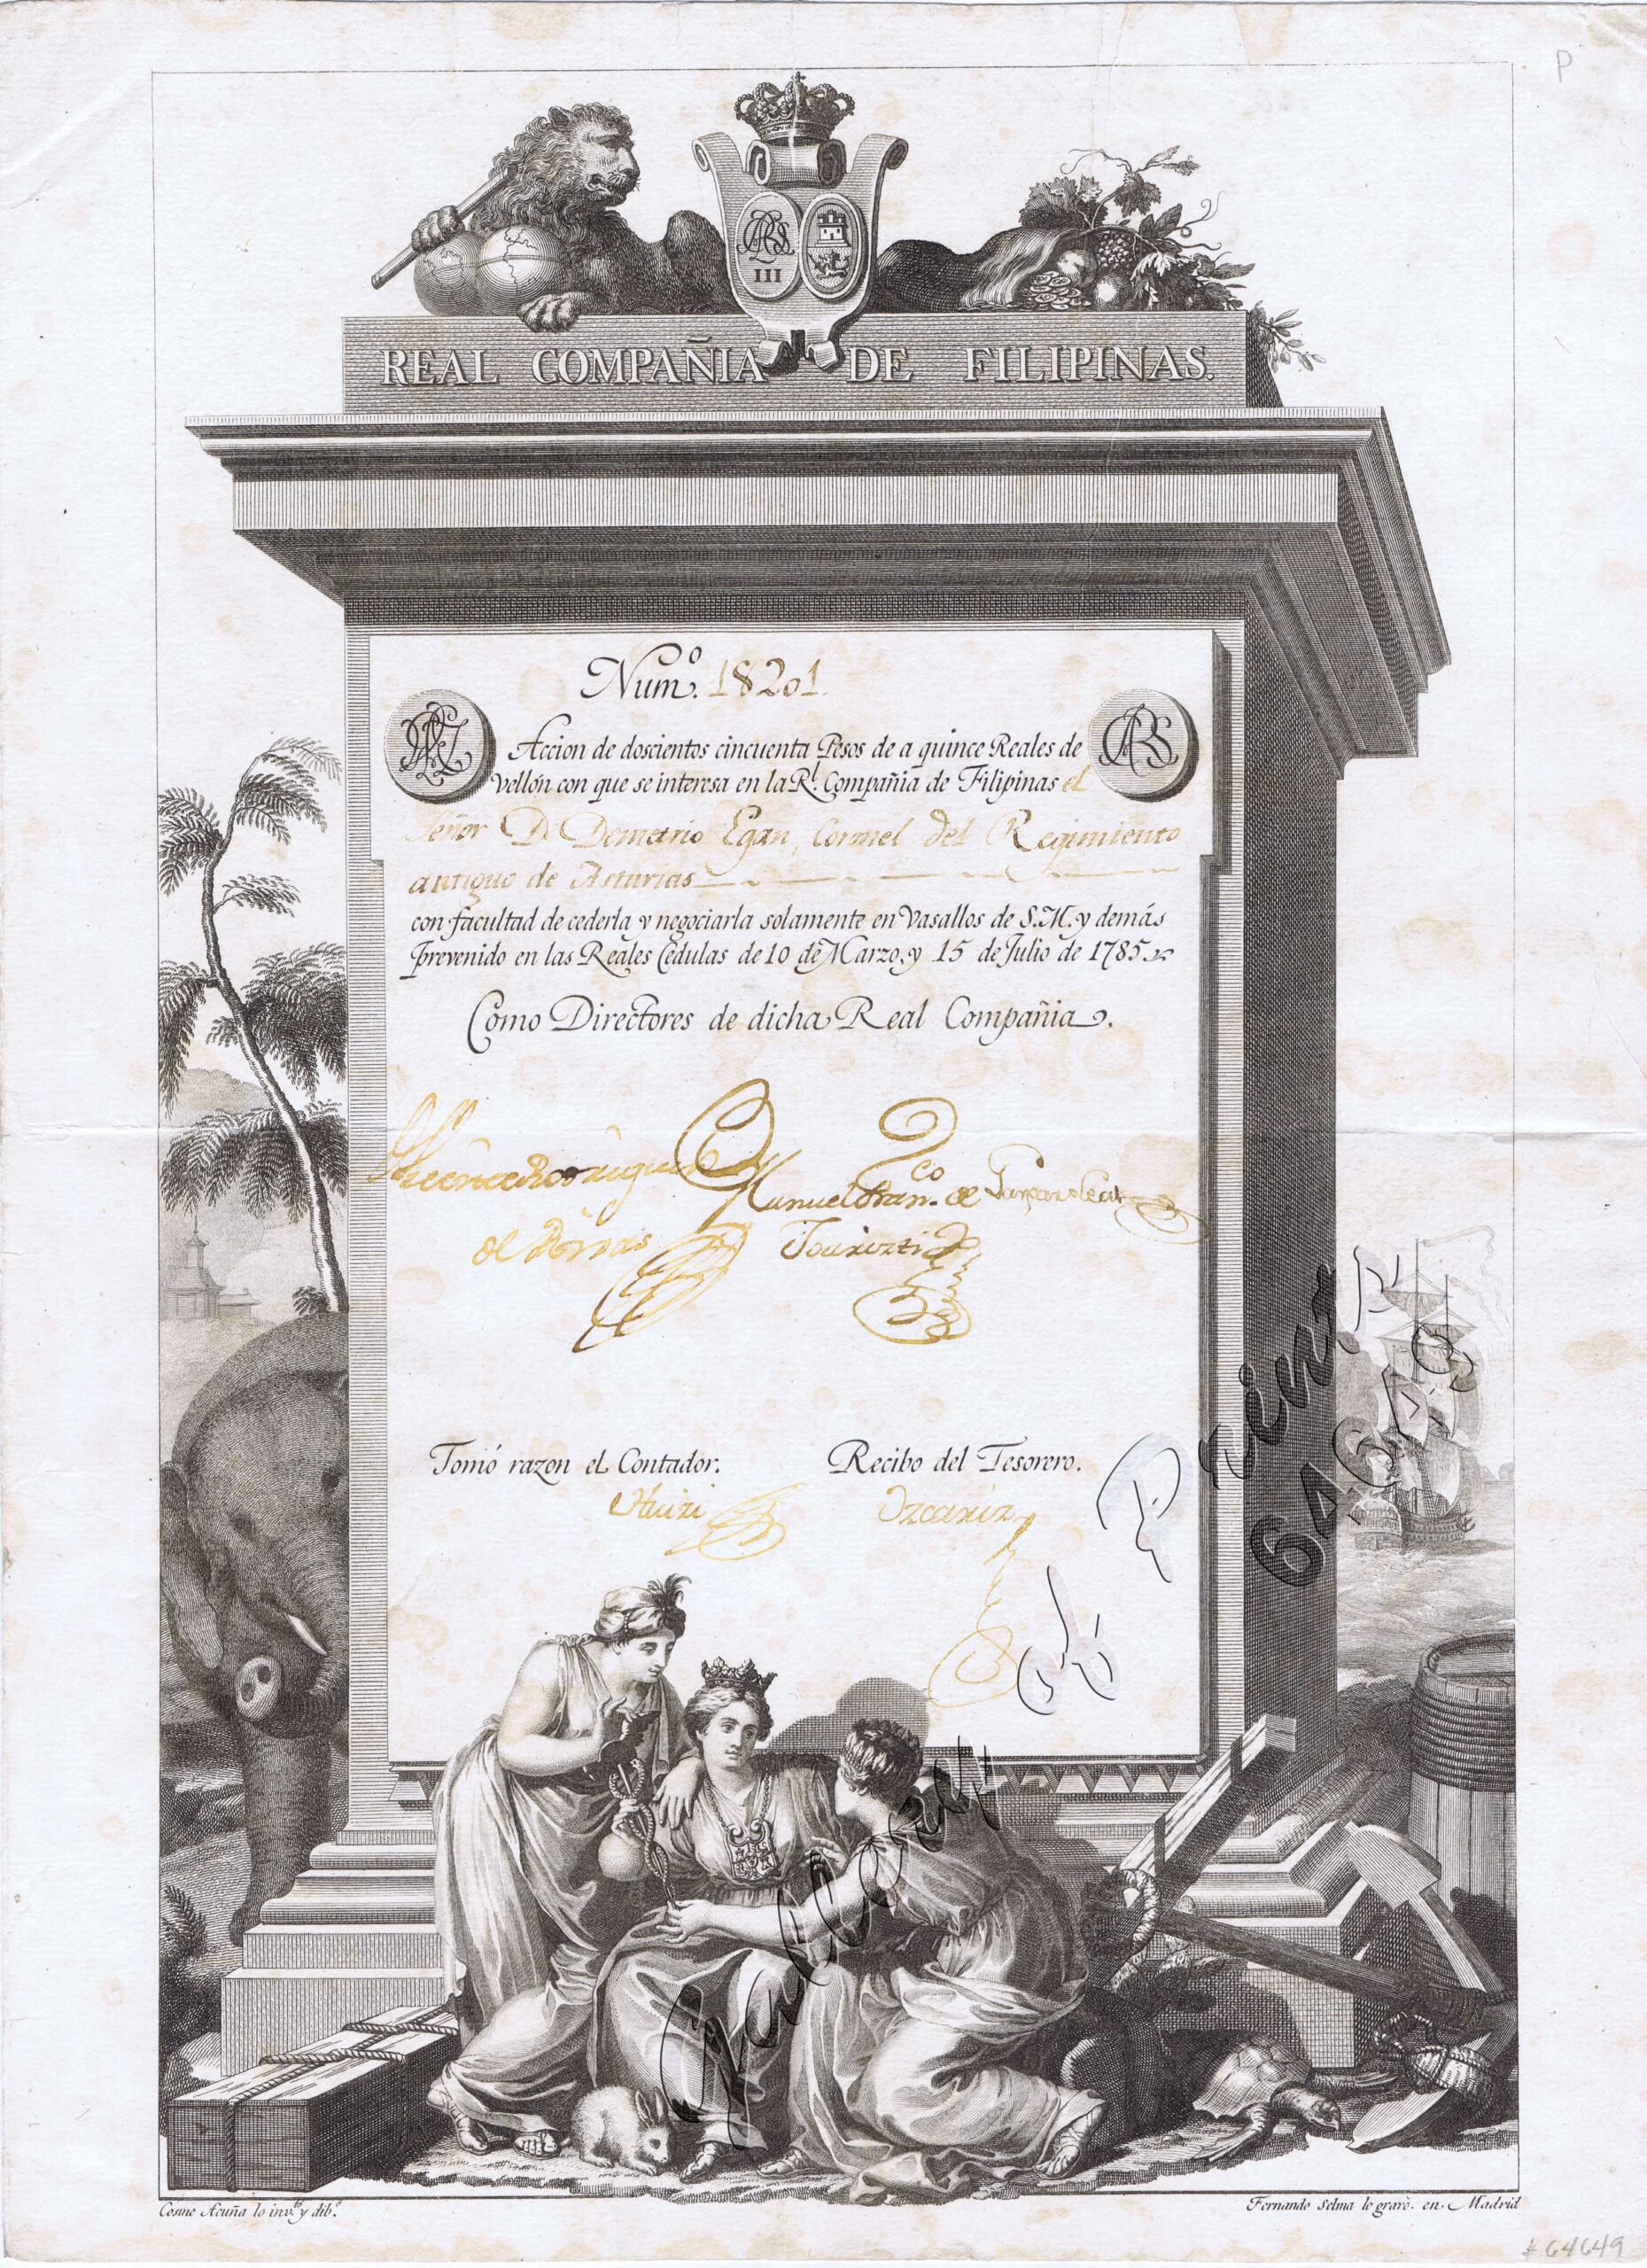 P
III
REAL COMPAÑIA DE FILIPINAS.
Num.º 18201.
Accion de doscientos cincuenta Pesos de a quince Reales de
vellón con que se interesa en la Rl. Compañia de Filipinas el
Señor D Demetrio Egan, Coronel del Regimiento
antiguo de Asturias
con facultad de cederla y negociarla solamente en Vasallos de S.M. y demás
prevenido en las Reales Cedulas de 10 de Marzo, y 15 de Julio de 1785
Como Directores de dicha Real Compañia.
Vicente Rodriguez
de Rivas
Manuel Fran.co de
Tomó razon el Contador.
Recibo del Tesorero.
Cosme Acuña lo inv.to y dib.o
Fernando Selma lo gravó. en Madrid
64649